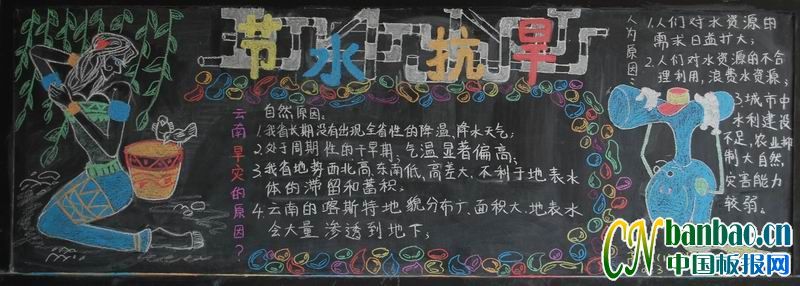 节水抗旱
云南旱灾的原因？
自然原因：
1.我省长期没有出现全省性的降温、降水天气；
2.处于周期性的干旱期，气温显著偏高；
3.我省地势西北高、东南低，高差大，不利于地表水
体的滞留和蓄积。
4.云南的喀斯特地貌分布广、面积大、地表水
会大量渗透到地下；
人为原因：
1.人们对水资源的
需求日益扩大；
2.人们对水资源的不合
理利用，浪费水资源；
3.城市中
水利建设
不足，农业抑
制大自然
灾害能力
较弱。
CN banbao.cn
中国板报网